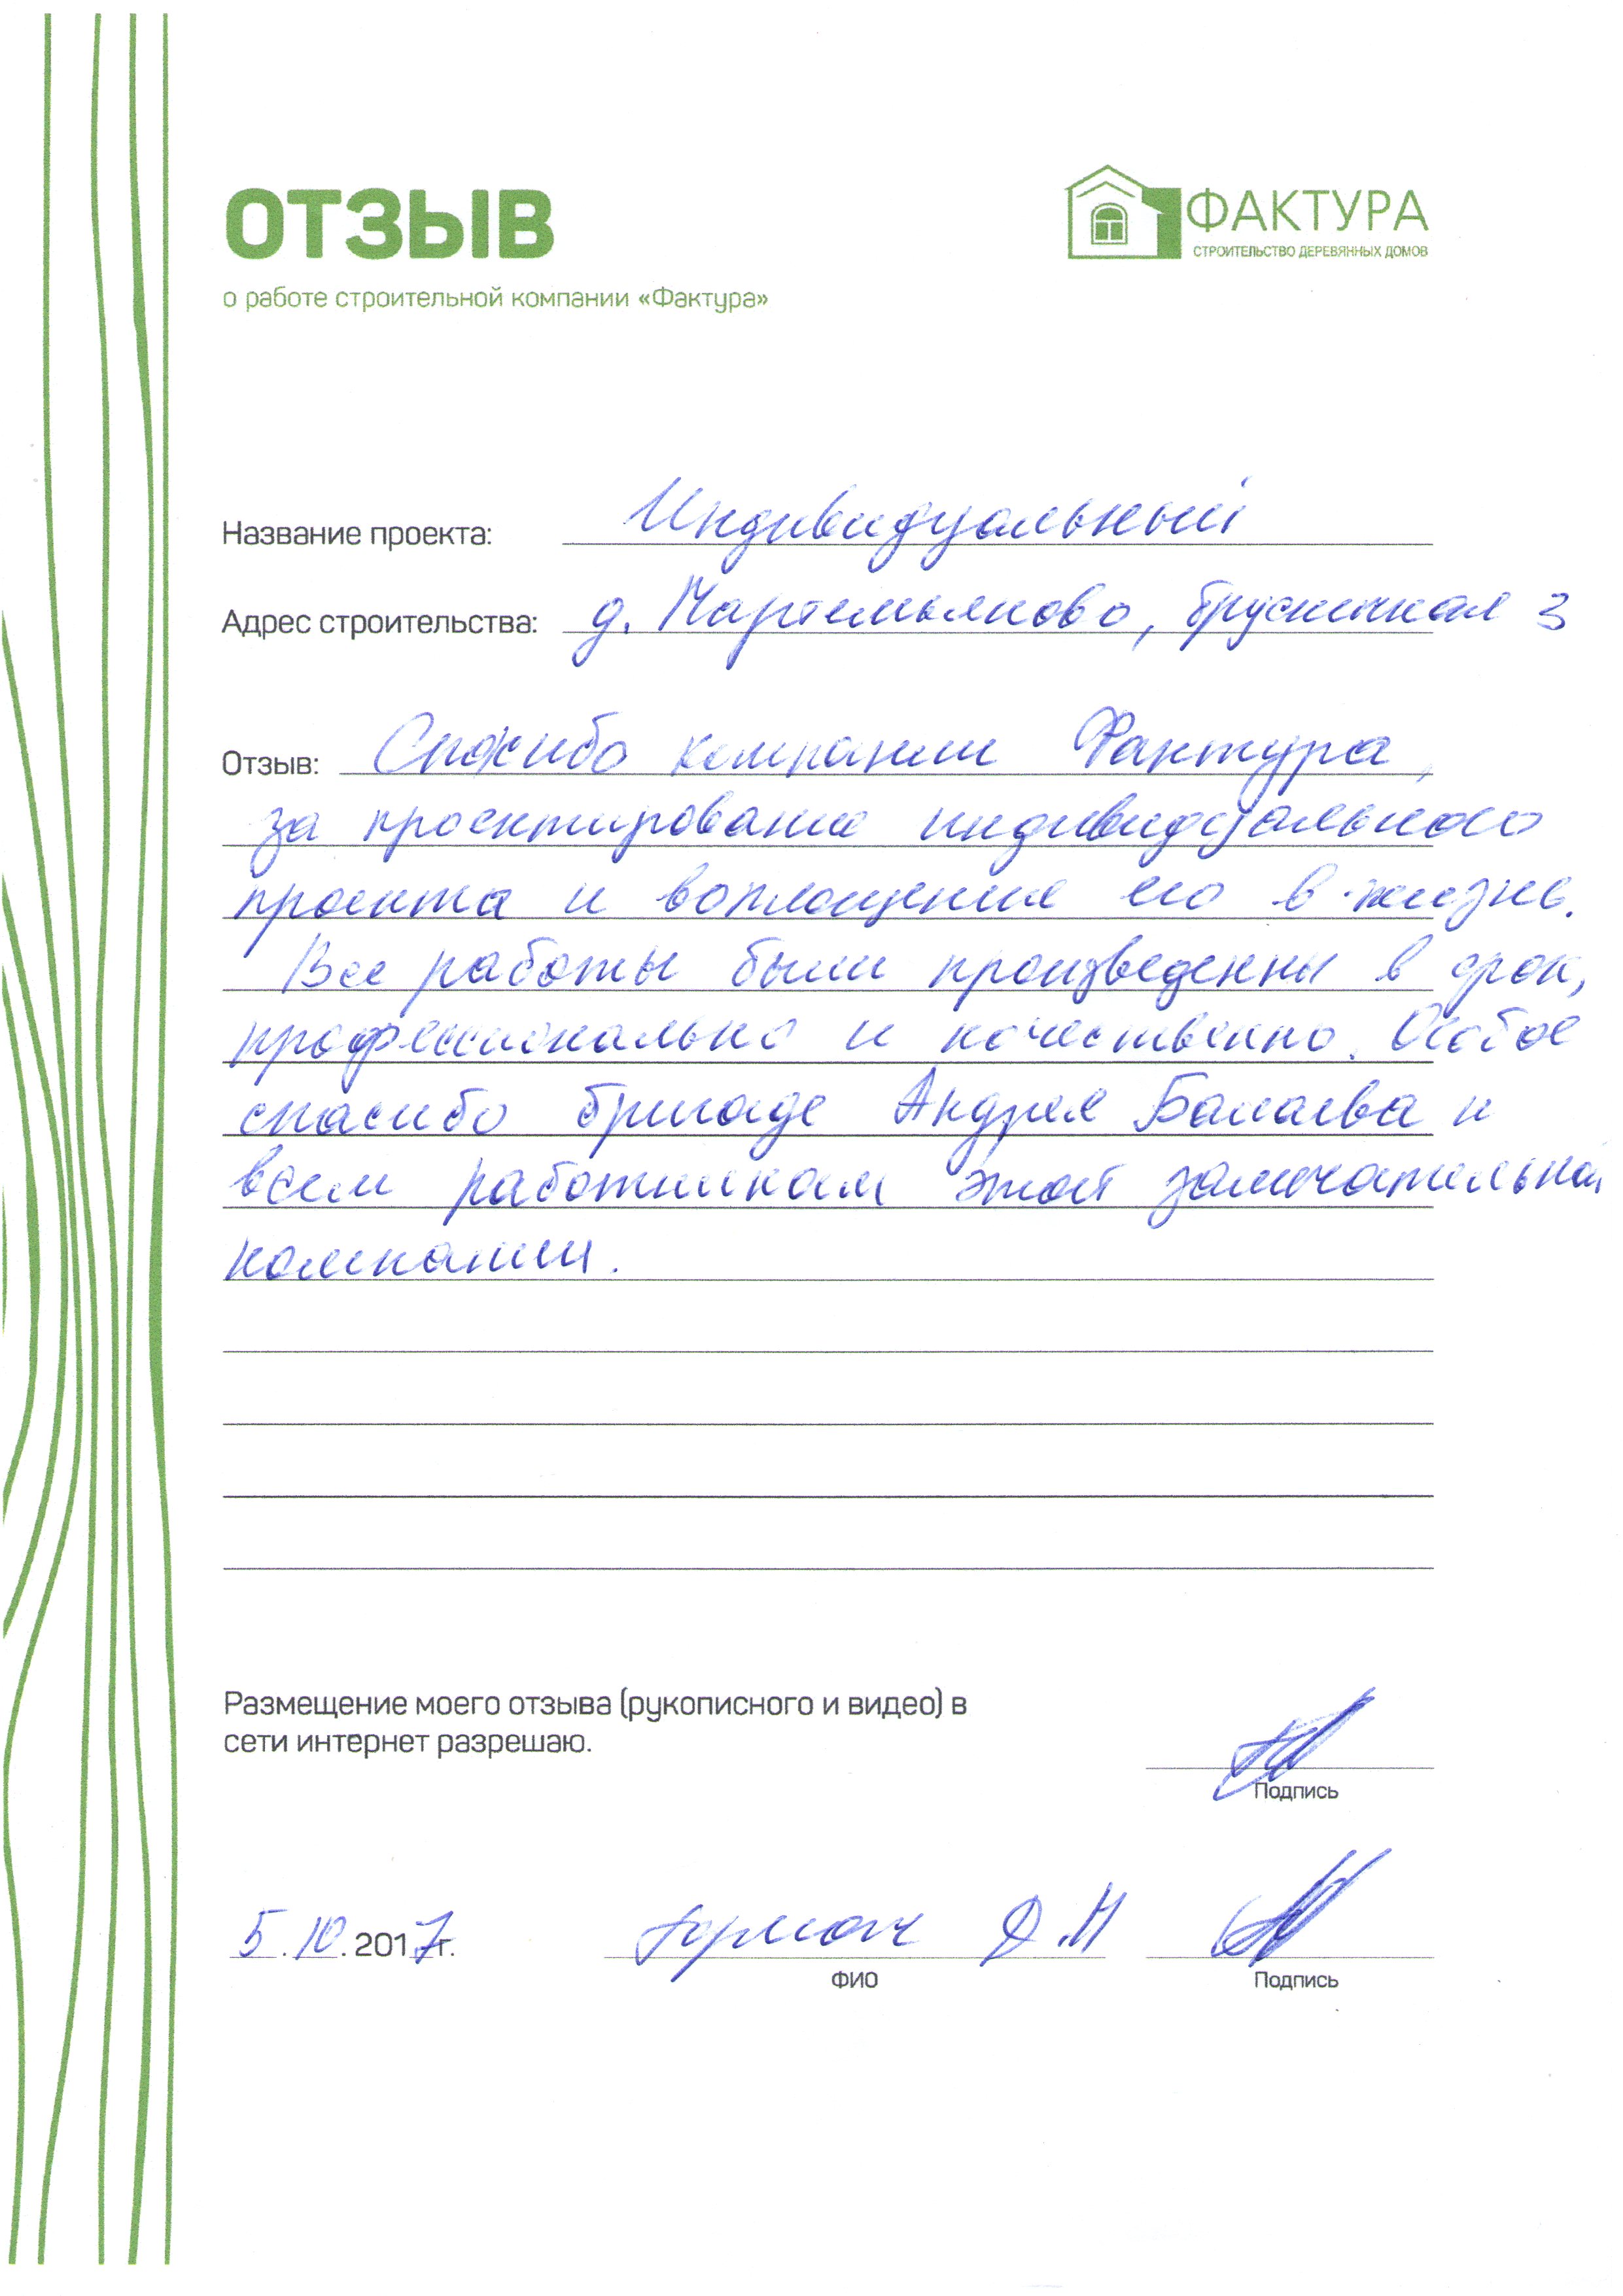 ОТЗЫВ
ФАКТУРА
СТРОИТЕЛЬСТВО ДЕРЕВЯННЫХ ДОМОВ
о работе строительной компании «Фактура»
Название проекта: Индивидуальный
Адрес строительства: д. Мартемьяново, брусничная 3
Отзыв: Спасибо компании Фактура,
за проектирование индивидуального
проекта и воплощения его в жизнь.
Все работы были произведенны в срок,
профессионально и качественно. Особое
спасибо бригаде Андрея Балаева и
всем работникам этой замечательной
компании.
Размещение моего отзыва (рукописного и видео) в
сети интернет разрешаю.
Подпись
5.10.2017г. Д.М
ФИО Подпись